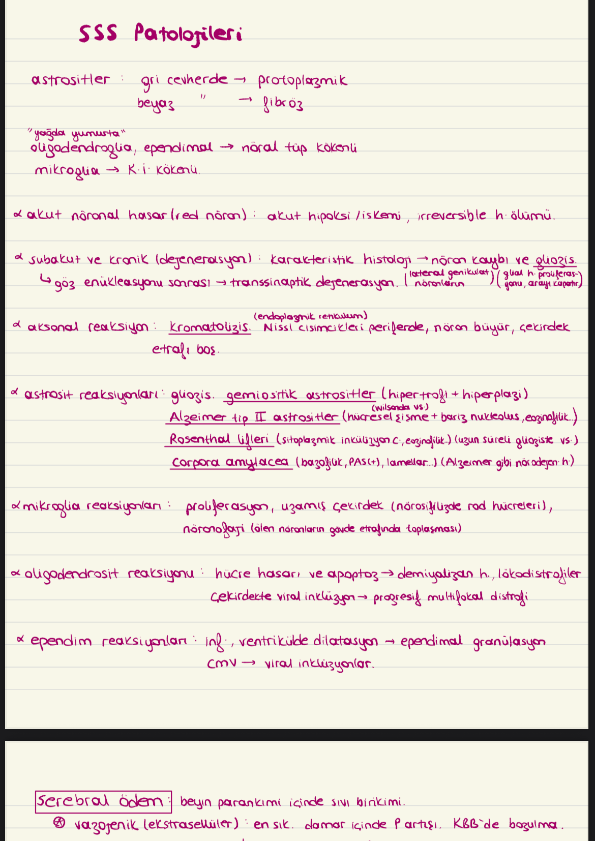 SSS Patolojileri
astrositler : gri cevherde → protoplazmik
beyaz " → fibröz
"yağda yumurta"
oligodendroglia, ependimal → nöral tüp kökenli
mikroglia → K.İ. kökenli.
∝ akut nöronal hasar (red nöron) : akut hipoksi / iskemi , irreversible h. ölümü.
∝ subakut ve kronik (dejenerasyon) : karakteristik histoloji → nöron kaybı ve gliozis.
↳ göz enükleasyonu sonrası → transsinaptik dejenerasyon. (lateral genikulat nöronların) (glial h. proliferasyonu, arayı kapatır)
(endoplazmik retikulum)
∝ aksonal reaksiyon : kromatolizis. Nissl cisimcikleri periferde, nöron büyür, çekirdek
etrafı boş.
∝ astrosit reaksiyonları : gliozis. gemiositik astrositler (hipertrofi + hiperplazi)
(wilsonda vs)
Alzeimer tip II astrositler (hücresel şişme + bariz nukleolus, eozinofilik.)
Rosenthal lifleri (sitoplazmik inklüzyon c., eozinofilik.) (uzun süreli glioziste vs.)
Corpora amylacea (bazofilik, PAS(+), lamellar..) (Alzeimer gibi nörodejen. h)
∝ mikroglia reaksiyonları : proliferasyon, uzamış çekirdek (nörosifilizde rod hücreleri),
nöronofaji (ölen nöronların gövde etrafında toplaşması)
∝ oligodendrosit reaksiyonu : hücre hasarı ve apoptoz → demiyalizan h., lökodistrofiler
Çekirdekte viral inklüzyon → progresif multifokal distrofi
∝ ependim reaksiyonları : inf., ventrikülde dilatasyon → ependimal granülasyon
CMV → viral inklüzyonlar.
Serebral ödem : beyin parankimi içinde sıvı birikimi.
vazojenik (ekstrasellüler) : en sık. damar içinde P artışı. KBB'de bozulma.